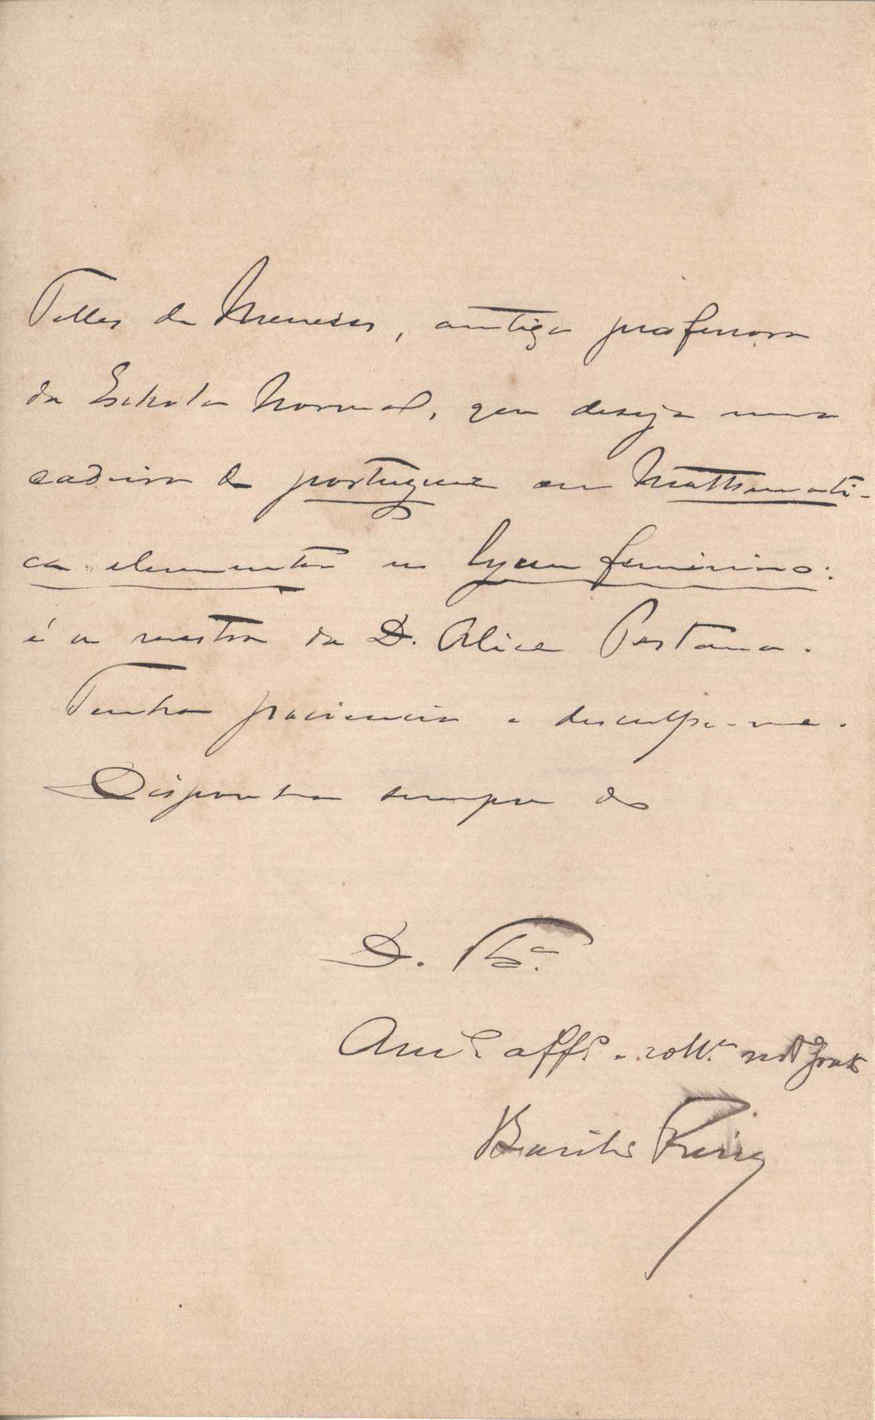 Telles de Menezes, antiga professora
da Eschola Normal, que deseja uma
cadeira de portuguez ou Mathemati-
ca elementar no lyceu feminino:
é a mestra da D. Alice Pestana.
Tenha paciencia e desculpe-me.
Disponha sempre do
D. V. Ex.ª
Am.º aff.º e coll.ª